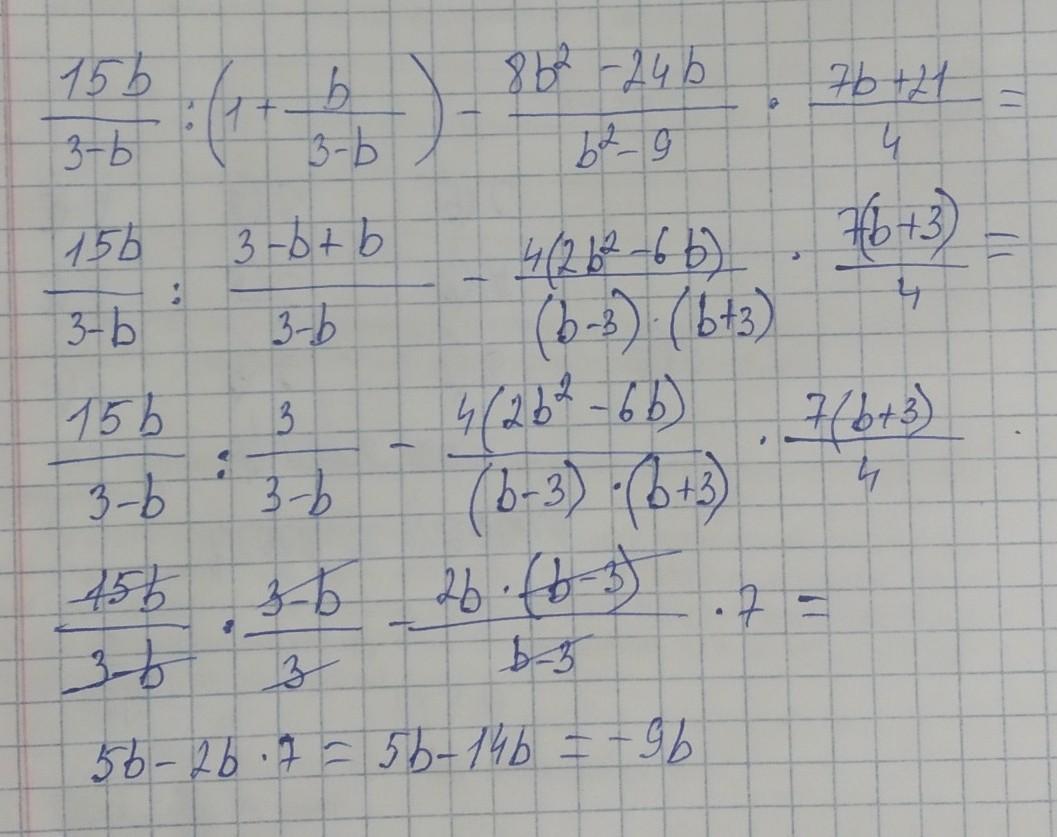 15b/(3-b) : (1 + b/(3-b)) - (8b² - 24b)/(b² - 9) · (7b + 21)/4 =
15b/(3-b) : (3-b+b)/(3-b) - 4(2b² - 6b)/((b-3)·(b+3)) · 7(b+3)/4 =
15b/(3-b) : 3/(3-b) - 4(2b² - 6b)/((b-3)·(b+3)) · 7(b+3)/4 ·
15b/(3-b) · (3-b)/3 - 2b·(b-3)/(b-3) · 7 =
5b - 2b · 7 = 5b - 14b = -9b